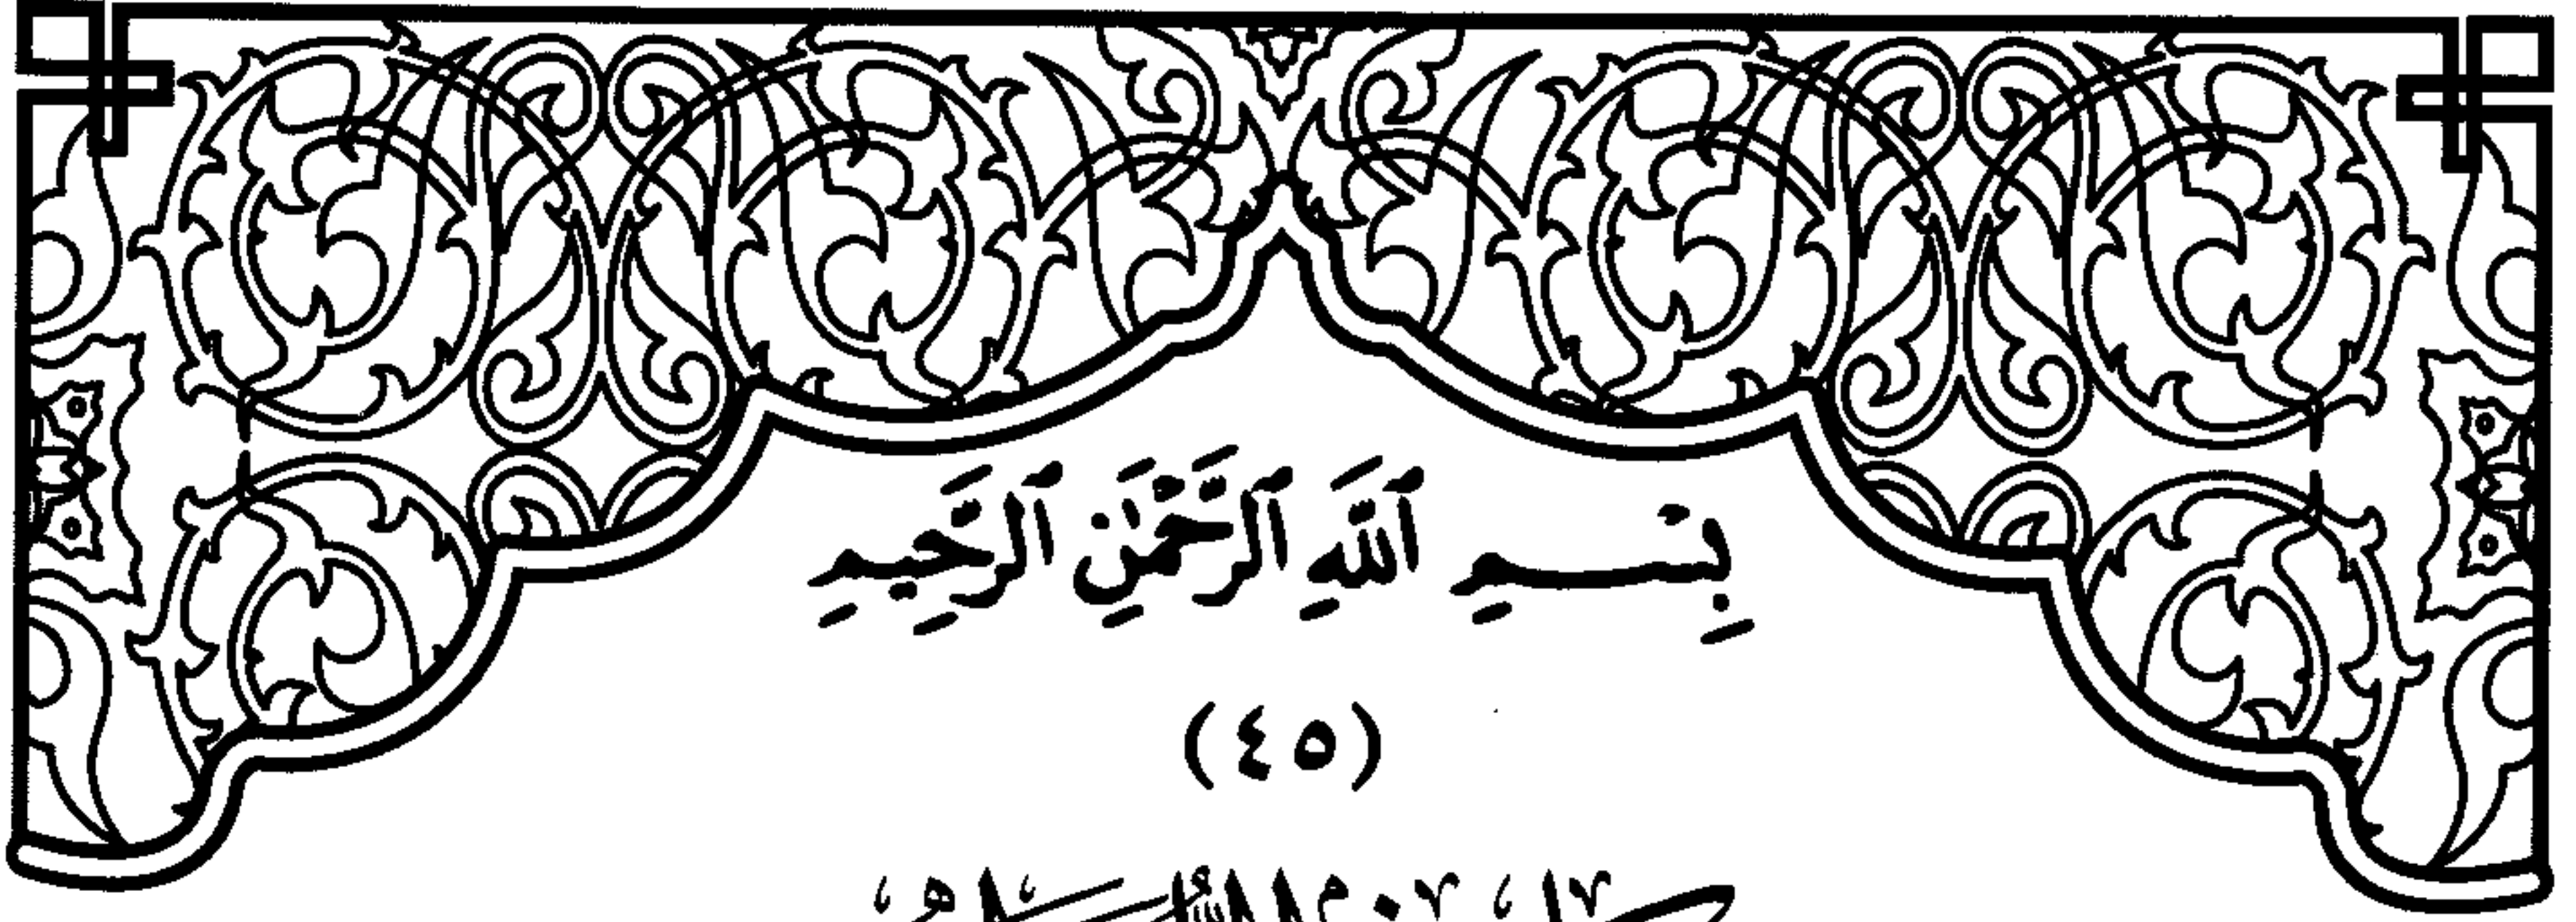 بِسْمِ ٱللَّهِ ٱلرَّحْمَٰنِ ٱلرَّحِيمِ
(٤٥)